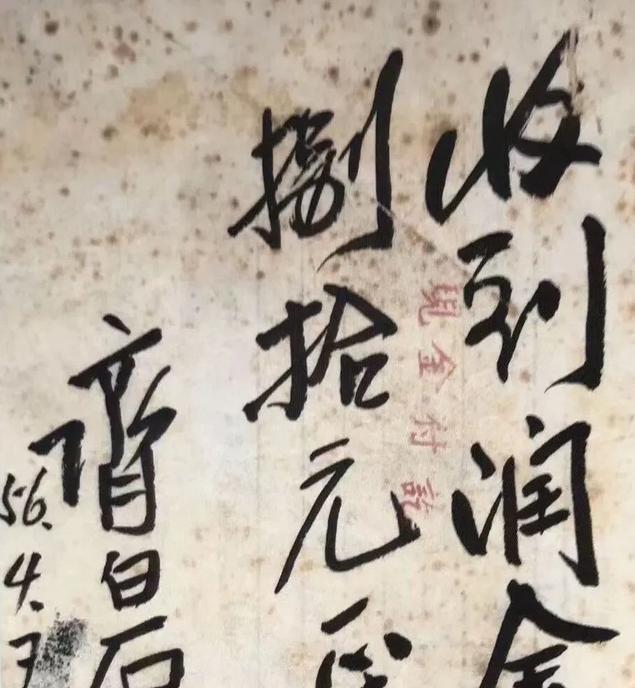 收到润金
捌拾元正
齊白石
56.4.3
现金付訖